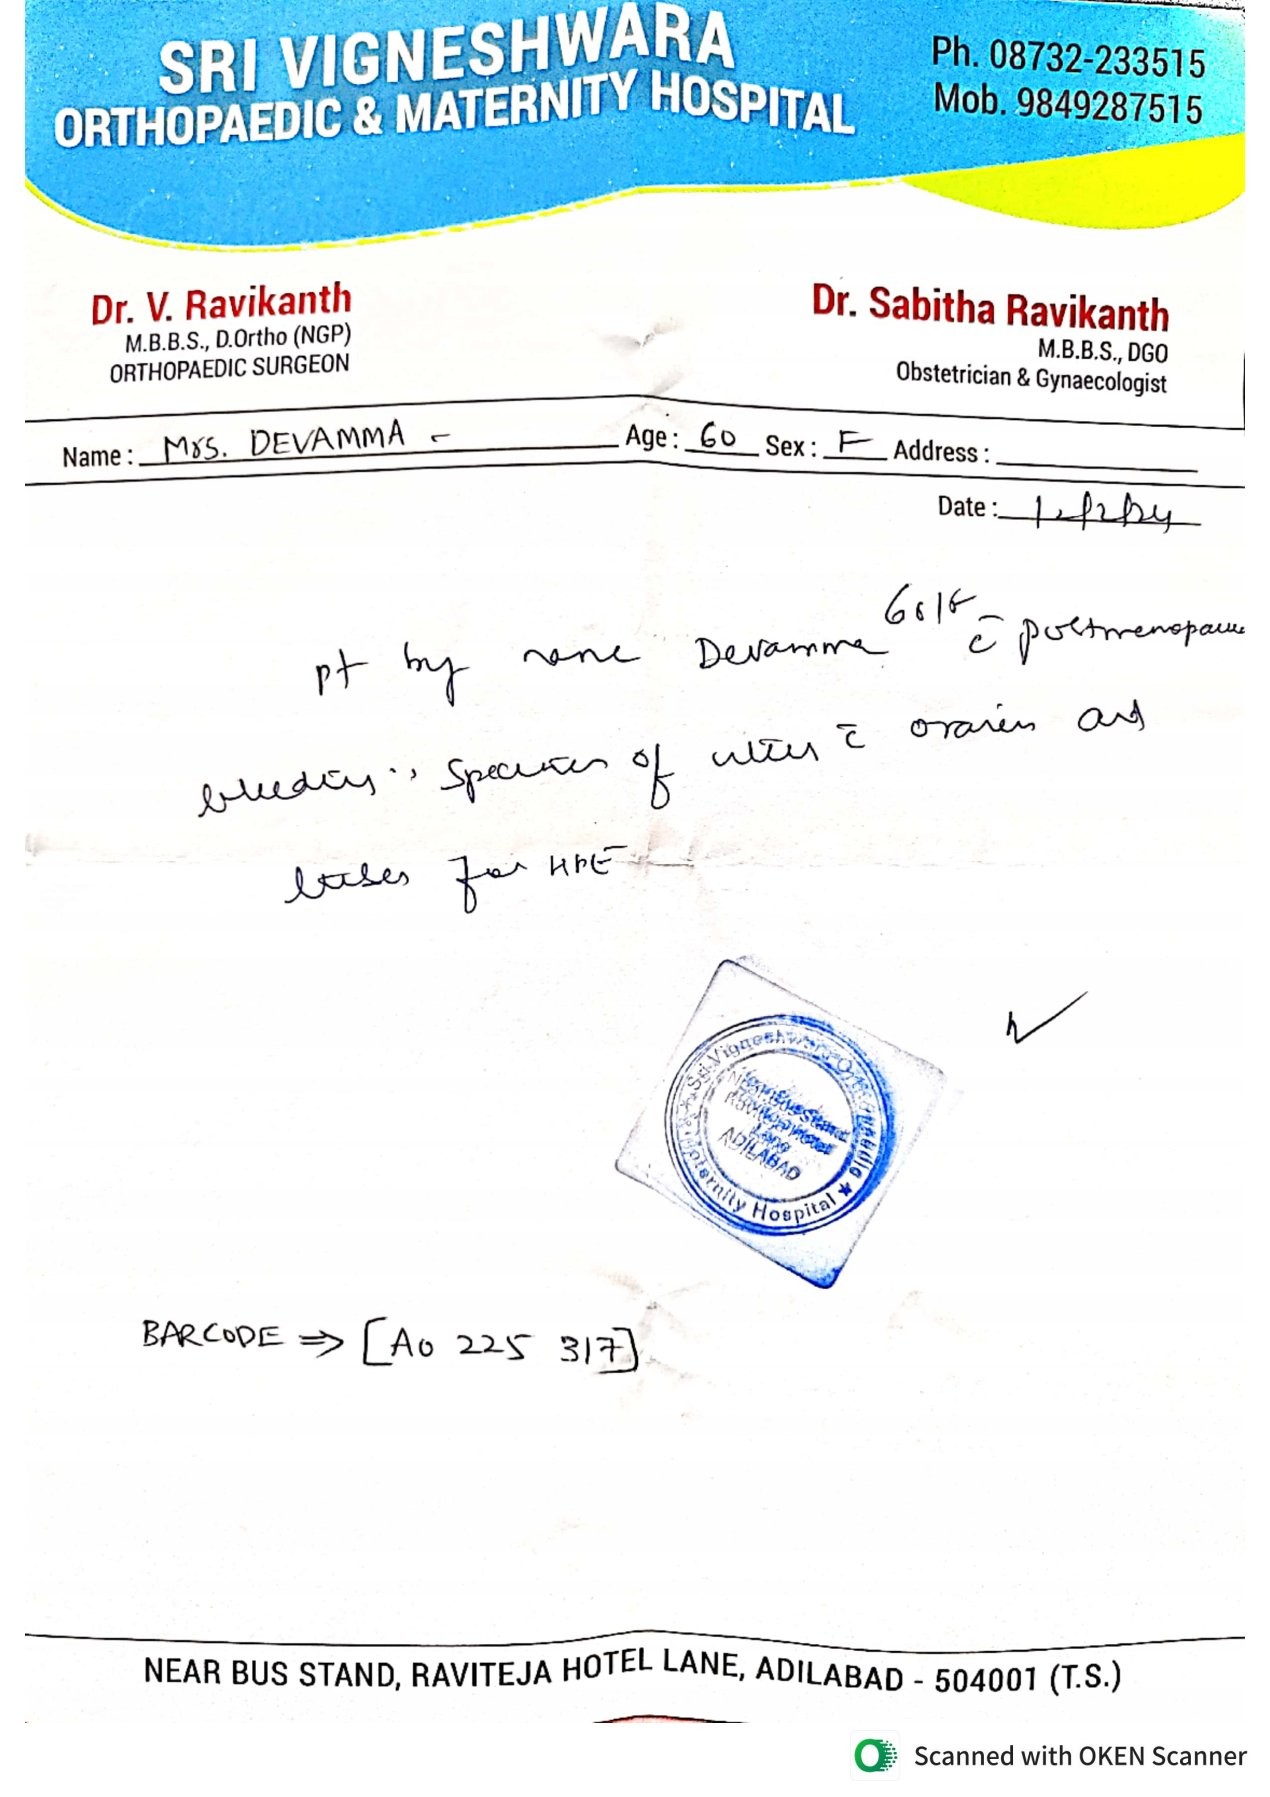 SRI VIGNESHWARA
ORTHOPAEDIC & MATERNITY HOSPITAL
Ph. 08732-233515
Mob. 9849287515
Dr. V. Ravikanth
M.B.B.S., D.Ortho (NGP)
ORTHOPAEDIC SURGEON
Dr. Sabitha Ravikanth
M.B.B.S., DGO
Obstetrician & Gynaecologist
Name: Mrs. DEVAMMA - Age: 60 Sex: F Address:
Date:
pt by name Devamma 60/F c̄ postmenopause
bleeding specimen of uterus c̄ ovaries and
tubes for HPE
Sri Vigneshwara Orthopaedic
Maternity Hospital ★
ADILABAD
BARCODE ⇒ [A0 225 317]
NEAR BUS STAND, RAVITEJA HOTEL LANE, ADILABAD - 504001 (T.S.)
Scanned with OKEN Scanner